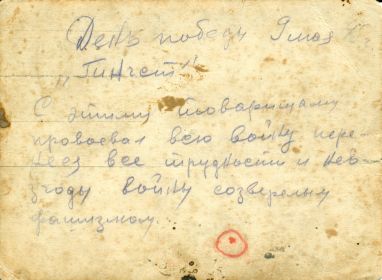 День победы 9 мая
"Пинчет"
С этими товарищами
провоевал всю войну пере-
нес все трудности и нев-
згоды войны созверелым
фашизмом.